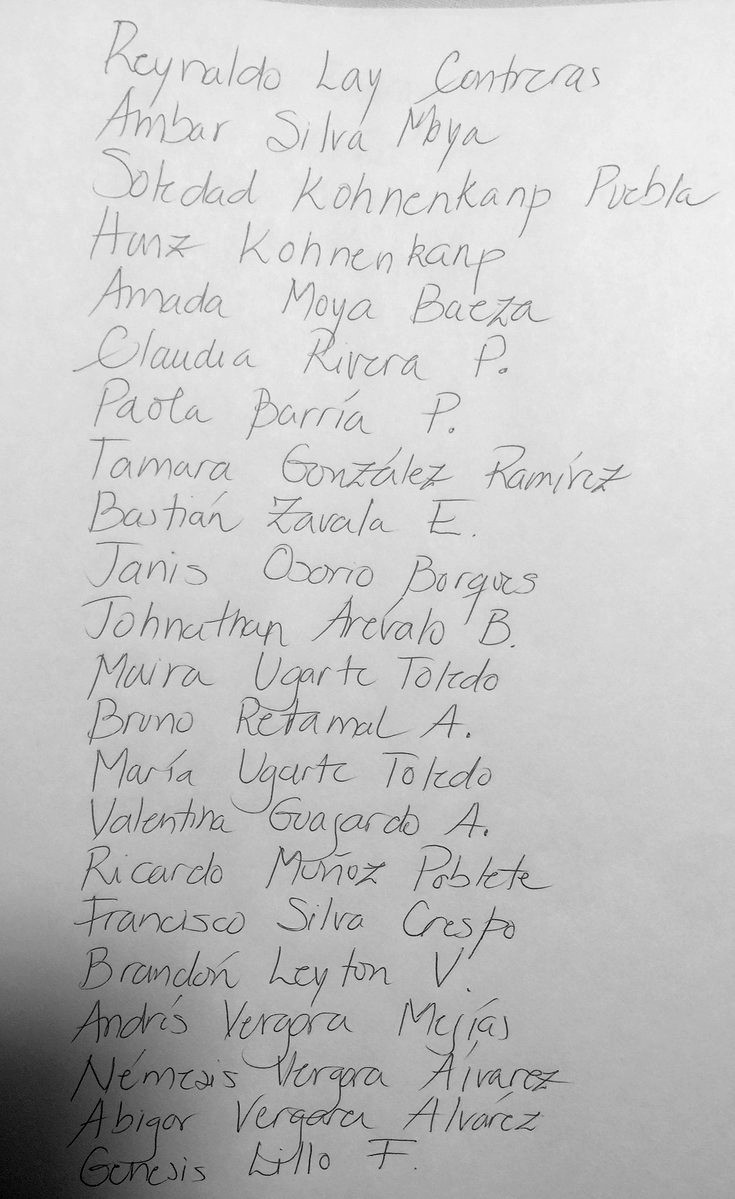 Reynaldo Lay Contreras
Ambar Silva Moya
Soledad Kohnenkanp Puebla
Hanz Kohnenkanp
Amada Moya Baeza
Claudia Rivera P.
Paola Barría P.
Tamara González Ramírez
Bastián Zavala E.
Janis Osorio Borques
Johnathan Arévalo B.
Maira Ugarte Toledo
Bruno Retamal A.
María Ugarte Toledo
Valentina Guajardo A.
Ricardo Muñoz Poblete
Francisco Silva Crespo
Brandón Leyton V.
Andrés Vergara Mejías
Némesis Vergara Álvarez
Abigar Vergara Alvárez
Genesis Lillo F.